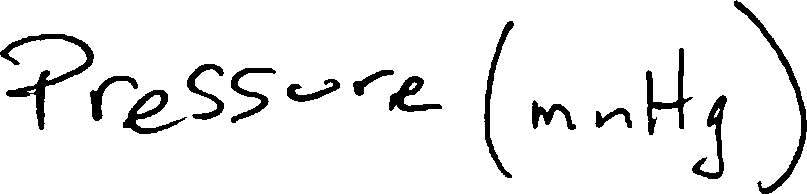 Pressure (mnHg)